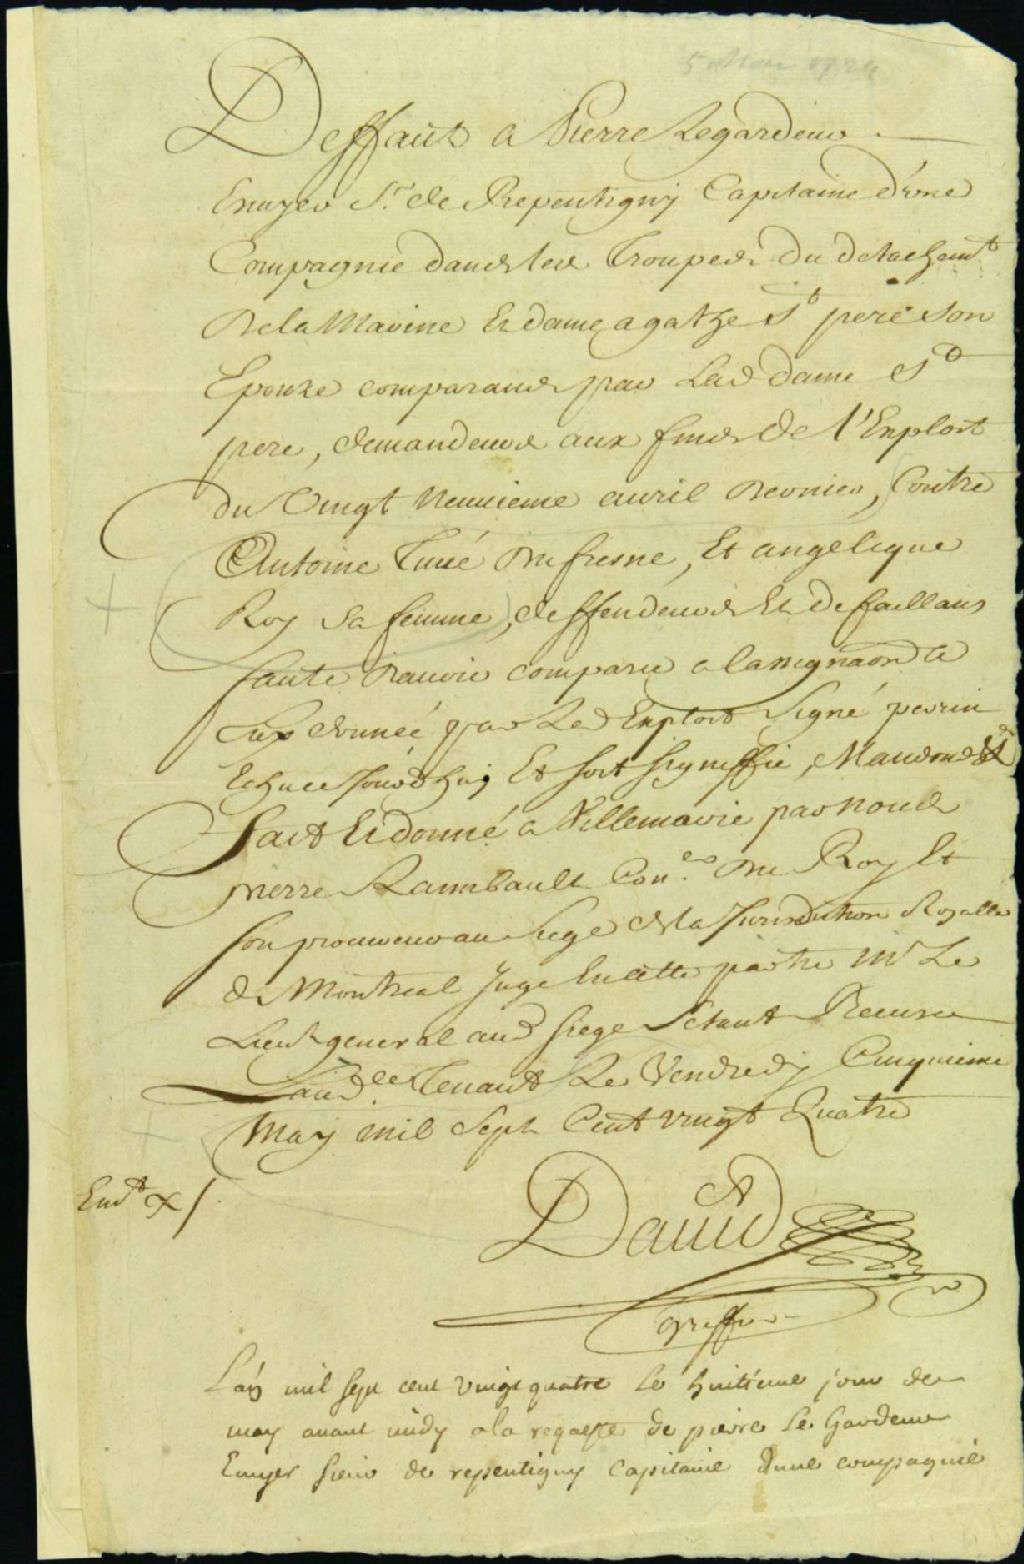 5 May 1724
Deffaut a Pierre Legardeur
Ecuyer Sr. de Repentigny Capitaine d'une
Compagnie dans les Troupes du detachemt
de la Marine Et dame agathe St pere son
Epouze comparans par Lad dame St
pere, demandeurs aux fins de l'Exploit
du Vingt Neuuieme auril dernier, Contre
Antoine Tuué Dufresne, Et angelique
Roy sa femme, deffendeurs Et defaillans
faute dauoir comparu a lassignaon a
Eux donnée par Led Exploit Signé perrin
Echue Jourdhuy Et soit signiffié, Mandons &
fait Et donné a Villemarie par nous
pierre Raimbault Coner du Roy Et
son procureur au siege de la Jurisdiction Royalle
de Montreal Juge En cette partie Mr Le
Lieut general aud siege sétant Recuse
Laud.ce Tenant Le Vendredy Cinquieme
May mil Sept Cent vingt Quatre
Dauid
greffier
L'an mil sept cent vingt quatre le huitieme jour de
may auant midy a la requeste de pierre le Gardeur
Ecuyer sieur de repentigny Capitaine d'une compagnie